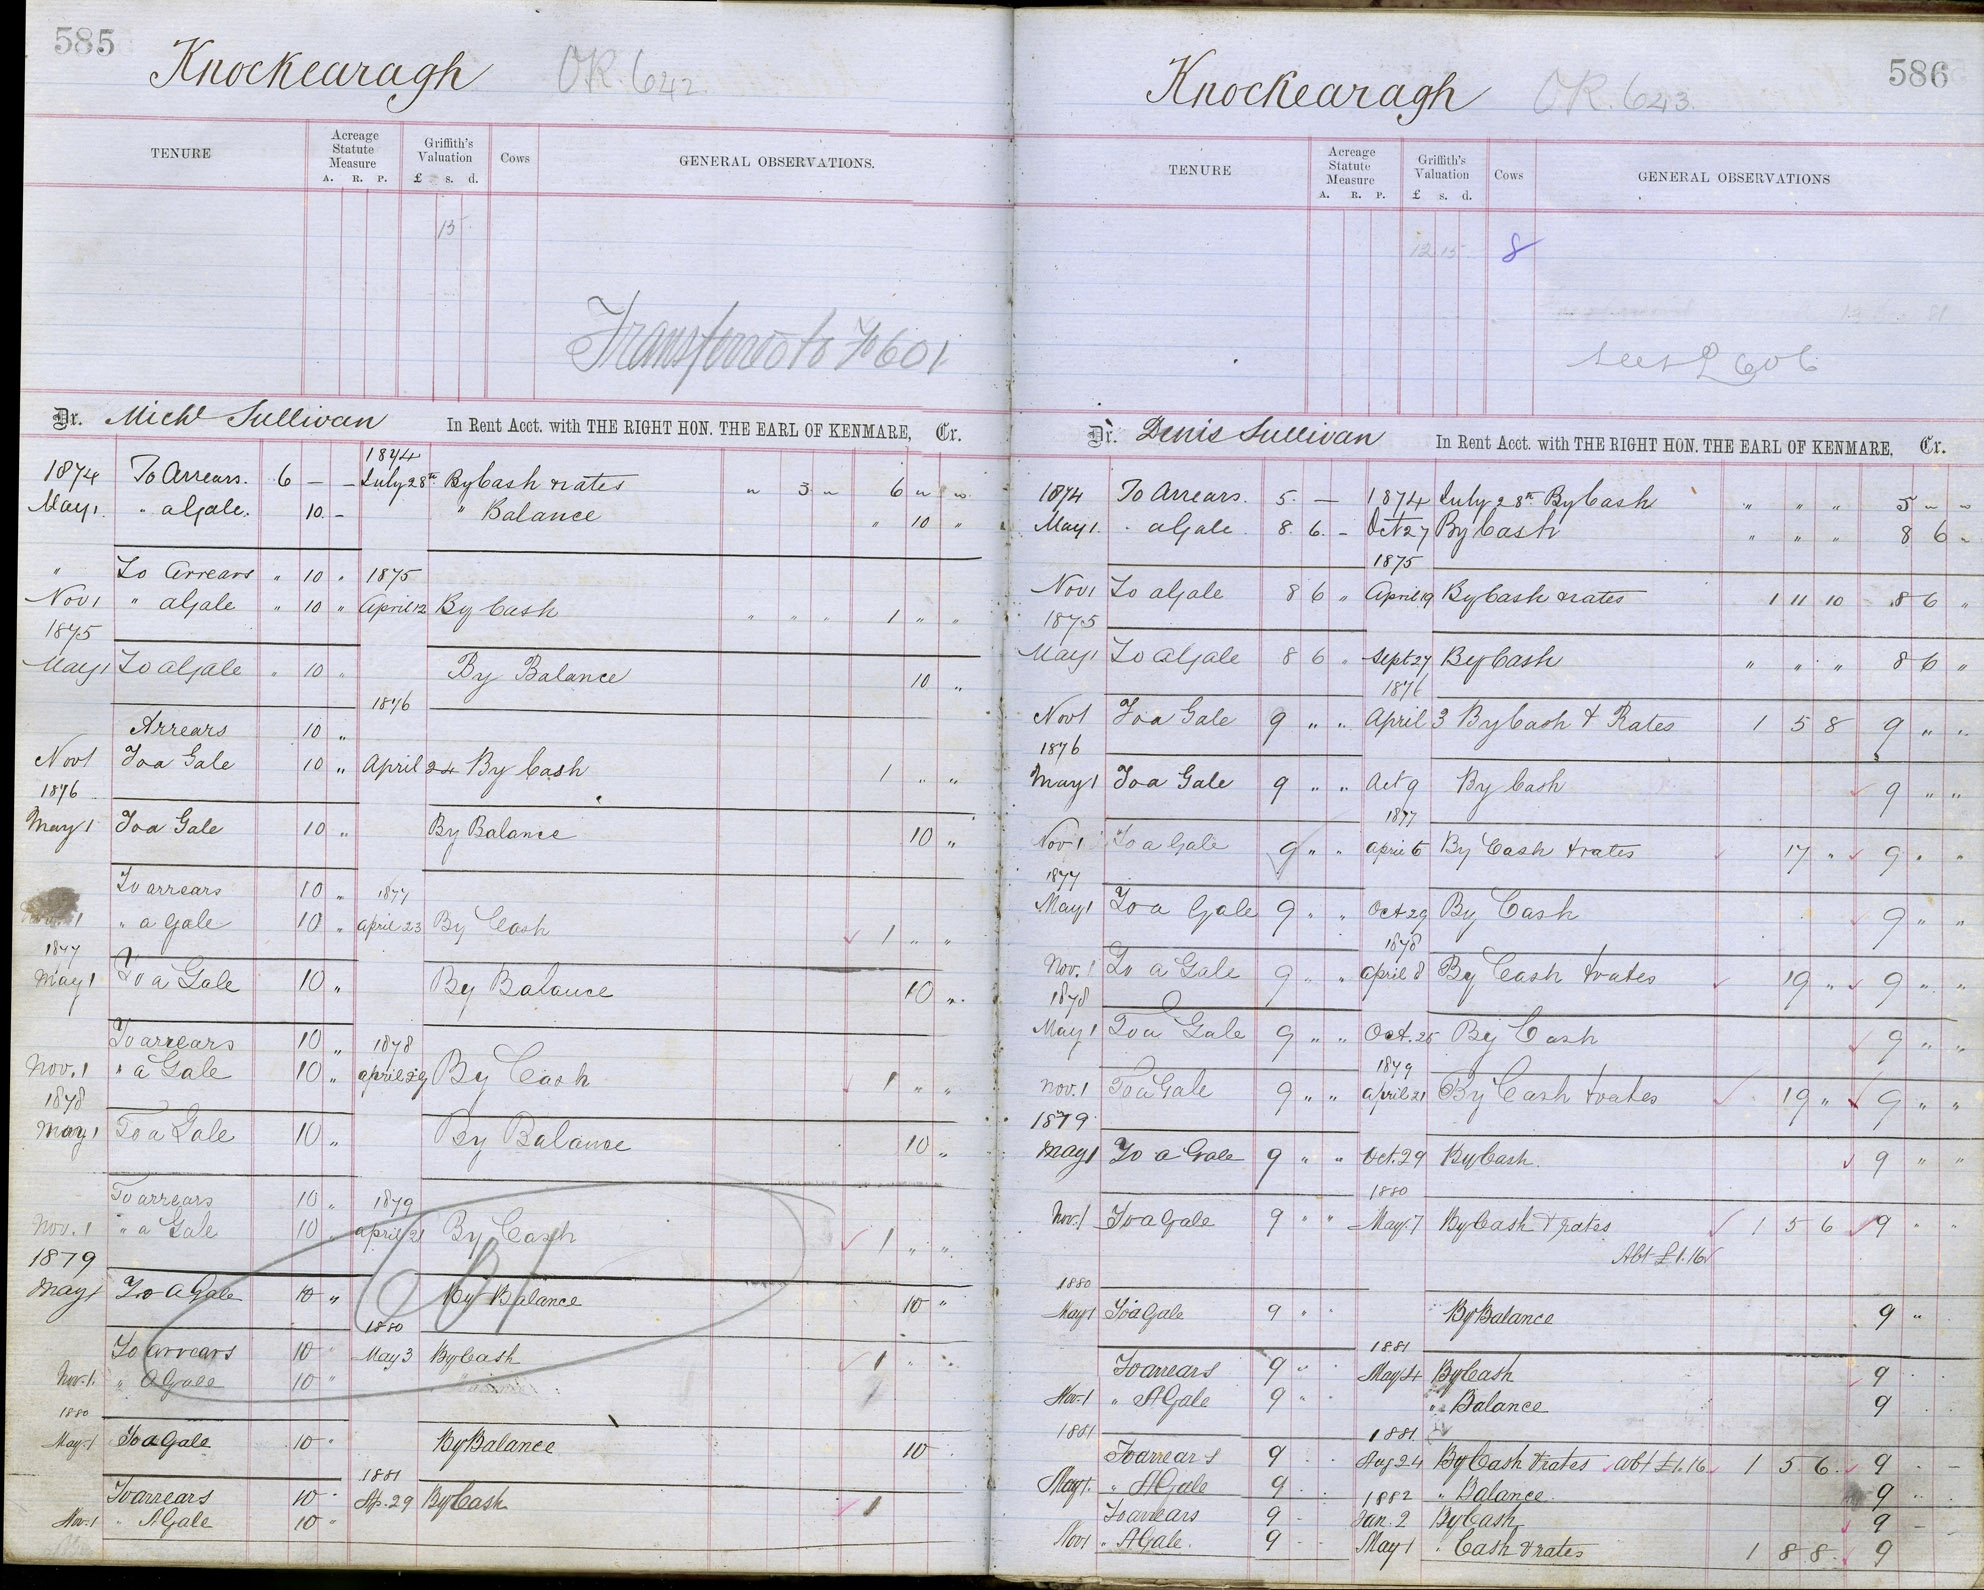 585
Knockearagh OR. 642
TENURE
Acreage Statute Measure
A. R. P.
Griffith's Valuation
£ s. d.
Cows
GENERAL OBSERVATIONS.
15
Transferred to Fo 601
Dr. Michl Sullivan In Rent Acct. with THE RIGHT HON. THE EARL OF KENMARE, Cr.
1874
1874 To Arrears. 6 – – July 28th By Cash & rates " 3 " 6 " "
May 1 " a Gale. 10 – " Balance " 10 "
" To Arrears " 10 " 1875
Nov 1 " a Gale " 10 " April 12 By Cash " " " 1 " "
1875
May 1 To a Gale " 10 " By Balance 10 "
1876
Arrears 10 "
Nov 1 To a Gale 10 " April 24 By Cash 1 " "
1876
May 1 To a Gale 10 " By Balance 10 "
To arrears 10 " 1877
1 " a Gale 10 " April 23 By Cash ✓ 1 " "
1877
May 1 To a Gale 10 " By Balance 10 "
To arrears 10 " 1878
Nov. 1 " a Gale 10 " April 29 By Cash ✓ 1 " "
1878
May 1 To a Gale 10 " By Balance 10 "
To arrears 10 " 1879
Nov. 1 " a Gale 10 " April 21 By Cash ✓ 1 " "
1879
May 1 To a Gale 10 " By Balance 10 "
601
1880
To arrears 10 " May 3 By Cash ✓ 1 "
Nov. 1. " A Gale 10 "
1880
May 1 To a Gale 10 " By Balance 10
1881
To arrears 10 " Ap. 29 By Cash ✓ 1
Nov. 1 " A Gale 10 "
586
Knockearagh OR. 643.
TENURE
Acreage Statute Measure
A. R. P.
Griffith's Valuation
£ s. d.
Cows
GENERAL OBSERVATIONS
12 15 8
606
Dr. Denis Sullivan In Rent Acct. with THE RIGHT HON. THE EARL OF KENMARE, Cr.
1874 To Arrears. 5. – 1874 July 28th By Cash " " " 5 " "
May 1. " a Gale 8. 6. – Oct 27 By Cash " " " 8 6 "
1875
Nov 1 To a Gale 8 6 " April 19 By Cash & rates 1 11 10 8 6 "
1875
May 1 To a Gale 8 6 " Sept 27 By Cash " " " 8 6 "
1876
Nov 1 To a Gale 9 " " April 3 By Cash & Rates 1 5 8 9 " "
1876
May 1 To a Gale 9 " " Oct 9 By Cash ✓ 9 " "
1877
Nov 1 To a Gale 9 " " April 6 By Cash & rates ✓ 17 " ✓ 9 " "
1877
May 1 To a Gale 9 " " Oct 29 By Cash ✓ 9 " "
1878
Nov. 1 To a Gale 9 " " April 8 By Cash & rates ✓ 19 " ✓ 9 " "
1878
May 1 To a Gale 9 " " Oct. 25 By Cash ✓ 9 " "
1879
Nov. 1 To a Gale 9 " " April 21 By Cash & rates ✓ 19 " ✓ 9 " "
1879
May 1 To a Gale 9 " " Oct. 29 By Cash. ✓ 9 " "
1880
Nov. 1 To a Gale 9 " " May. 7 By Cash & rates ✓ 1 5 6 ✓ 9 " "
Abt £1.16 ✓
1880
May 1 To a Gale 9 " " By Balance 9 "
1881
To arrears 9 " May 4 By Cash ✓ 9
Nov. 1 " A Gale 9 " " Balance 9
1881 1881
To arrears 9 Aug 24 By Cash & rates ✓ Abt £1.16 ✓ 1 5 6 ✓ 9 –
May 1. " A Gale 9 1882 " Balance 9
To arrears 9 – Jan. 2 By Cash ✓ 9 –
Nov 1 " A Gale. 9 May 1 " Cash & rates 1 8 8 ✓ 9